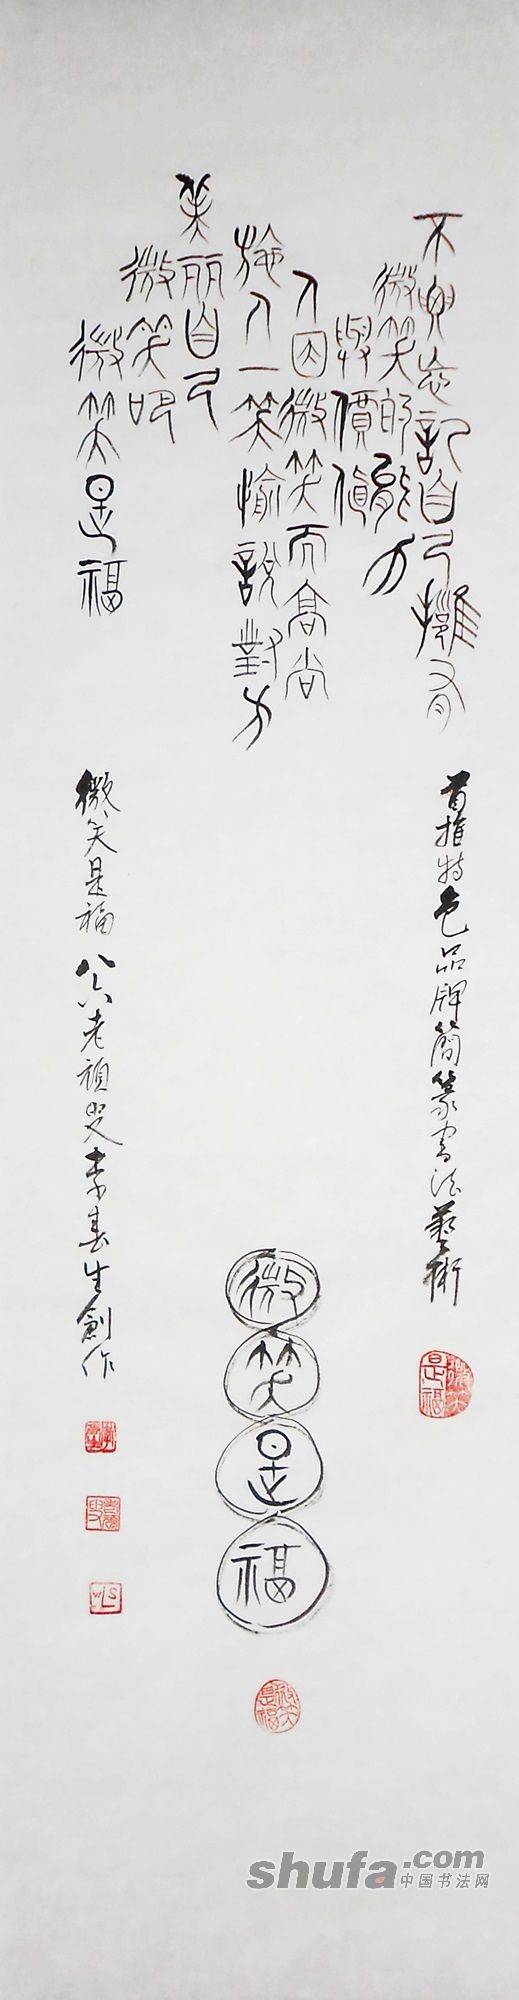 不要忘記自己擁有
微笑的能力
與價值
人因微笑而高尚
施人一笑愉說對方
美丽自己
微笑吧
微笑是福
首推特色品牌簡篆書法藝術
微笑是福 八六老頑叟李春生創作
微笑是福
微笑是福
微笑是福
shufa.com
中国书法网